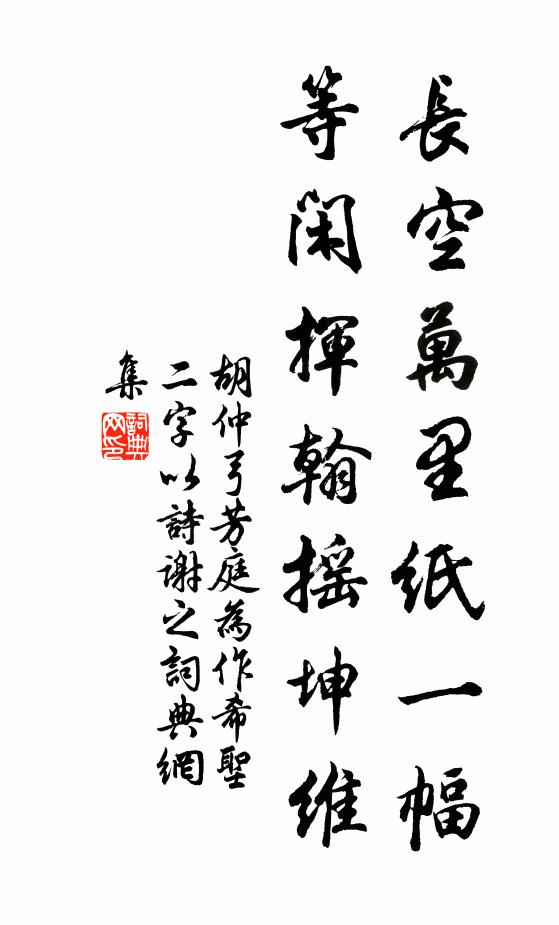 長空萬里紙一幅
等閑揮翰摇坤維
胡仲弓芳庭為作希聖
二字以詩謝之詞典網
集
詞典
网印